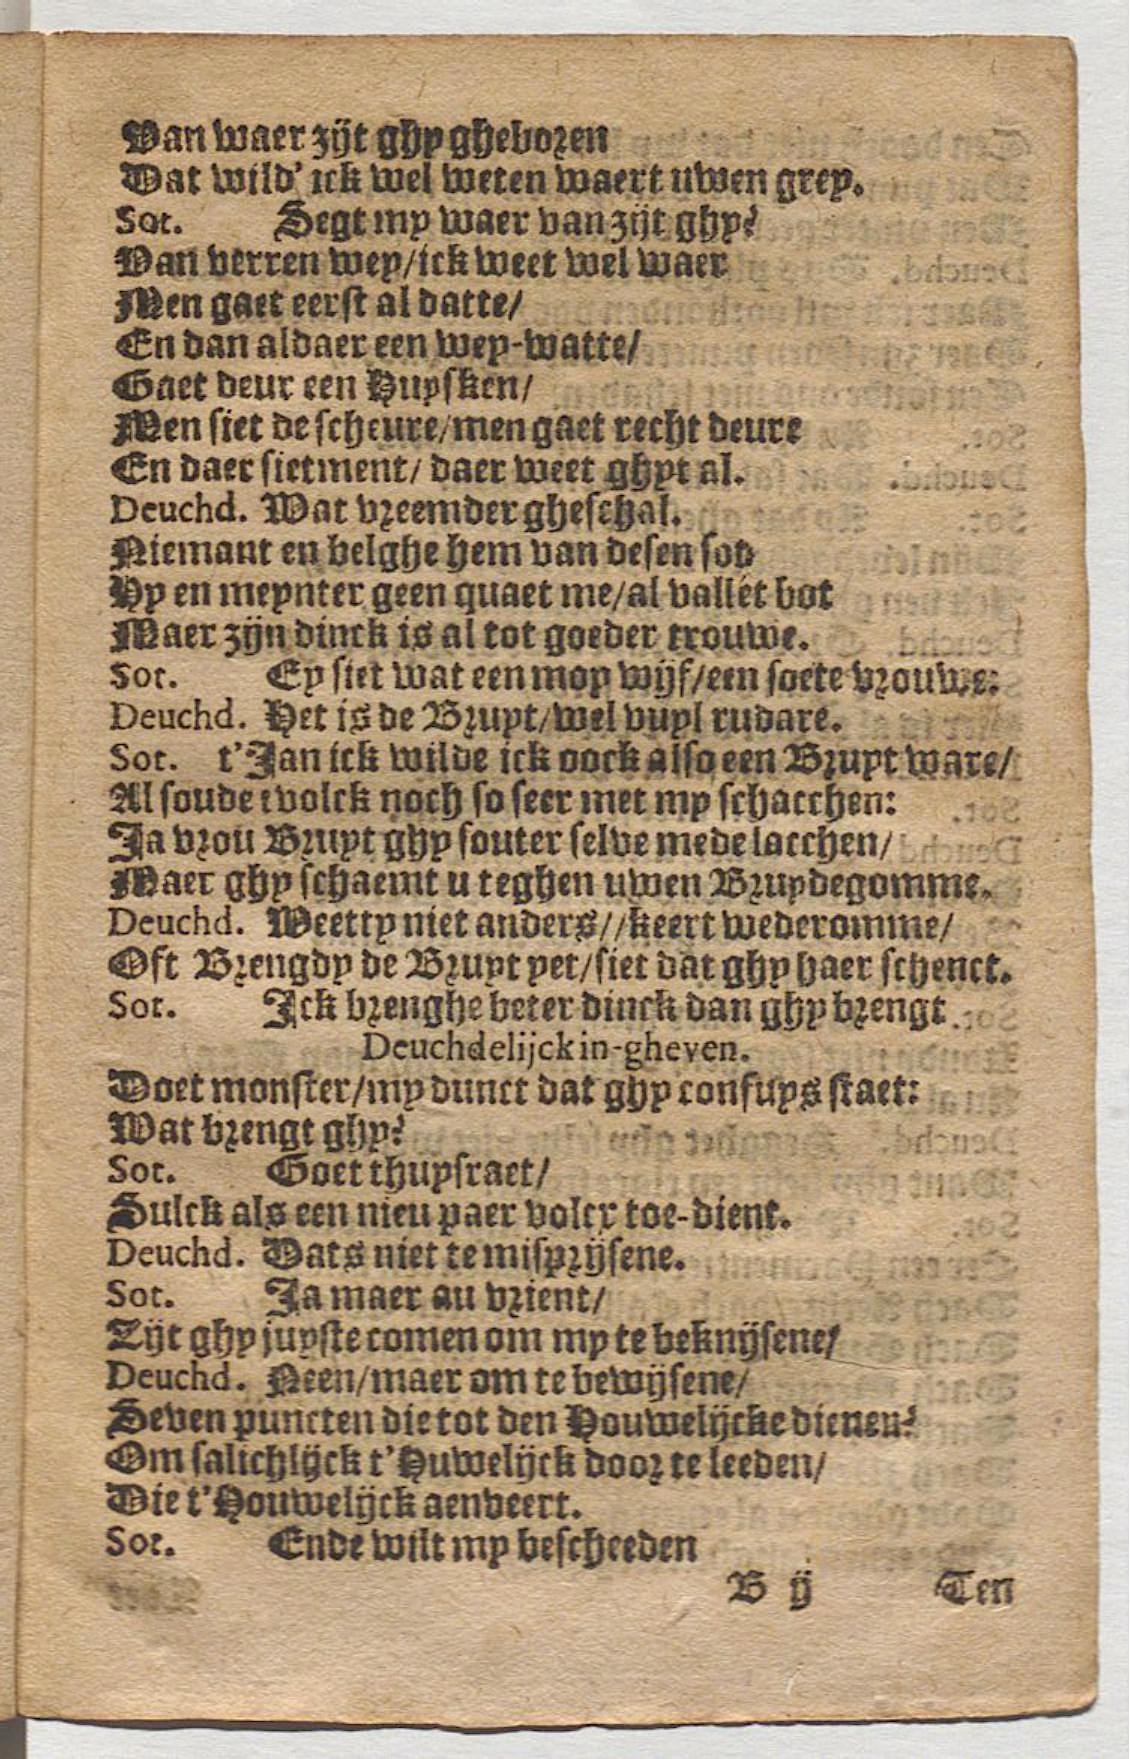 Van waer zijt ghy gheboren
Dat wild' ick wel weten waert uwen grey.
Sot. Segt my waer van zijt ghy?
Van verren wey/ick weet wel waer
Men gaet eerst al datte/
En dan aldaer een wey-watte/
Gaet deur een Huysken/
Men siet de scheure/men gaet recht deure
En daer sietment/ daer weet ghyt al.
Deuchd. Wat vreemder gheschal.
Niemant en belghe hem van desen sod
Hy en meynter geen quaet me/al vallet bot
Maer zijn dinck is al tot goeder trouwe.
Sot. Ey siet wat een moy wijf/een soete vrouwe:
Deuchd. Het is de Bruyt/wel vuyl rudare.
Sot. t'Jan ick wilde ick oock also een Bruyt ware/
Al soude tvolck noch so seer met my schacchen:
Ja vrou Bruyt ghy souter selve mede lacchen/
Maer ghy schaemt u teghen uwen Bruydegomme.
Deuchd. Weetty niet anders//keert wederomme/
Oft Brengdy de Bruyt yet/siet dat ghy haer schenct.
Sot. Ick brenghe beter dinck dan ghy brengt.
Deuchdelijck in-gheven.
Doet monster/my dunct dat ghy confuys staet:
Wat brengt ghy?
Sot. Goet thuysraet/
Sulck als een nieu paer volcx toe-dient.
Deuchd. Dats niet te misprijsene.
Sot. Ja maer au vrient/
Zijt ghy juyste comen om my te beknijsene/
Deuchd. Neen/maer om te bewijsene/
Seven puncten die tot den Houwelijcke dienen?
Om salichlijck t'Huwelijck door te leeden/
Die t'Houwelijck aenveert.
Sot. Ende wilt my bescheeden
B ij Ten